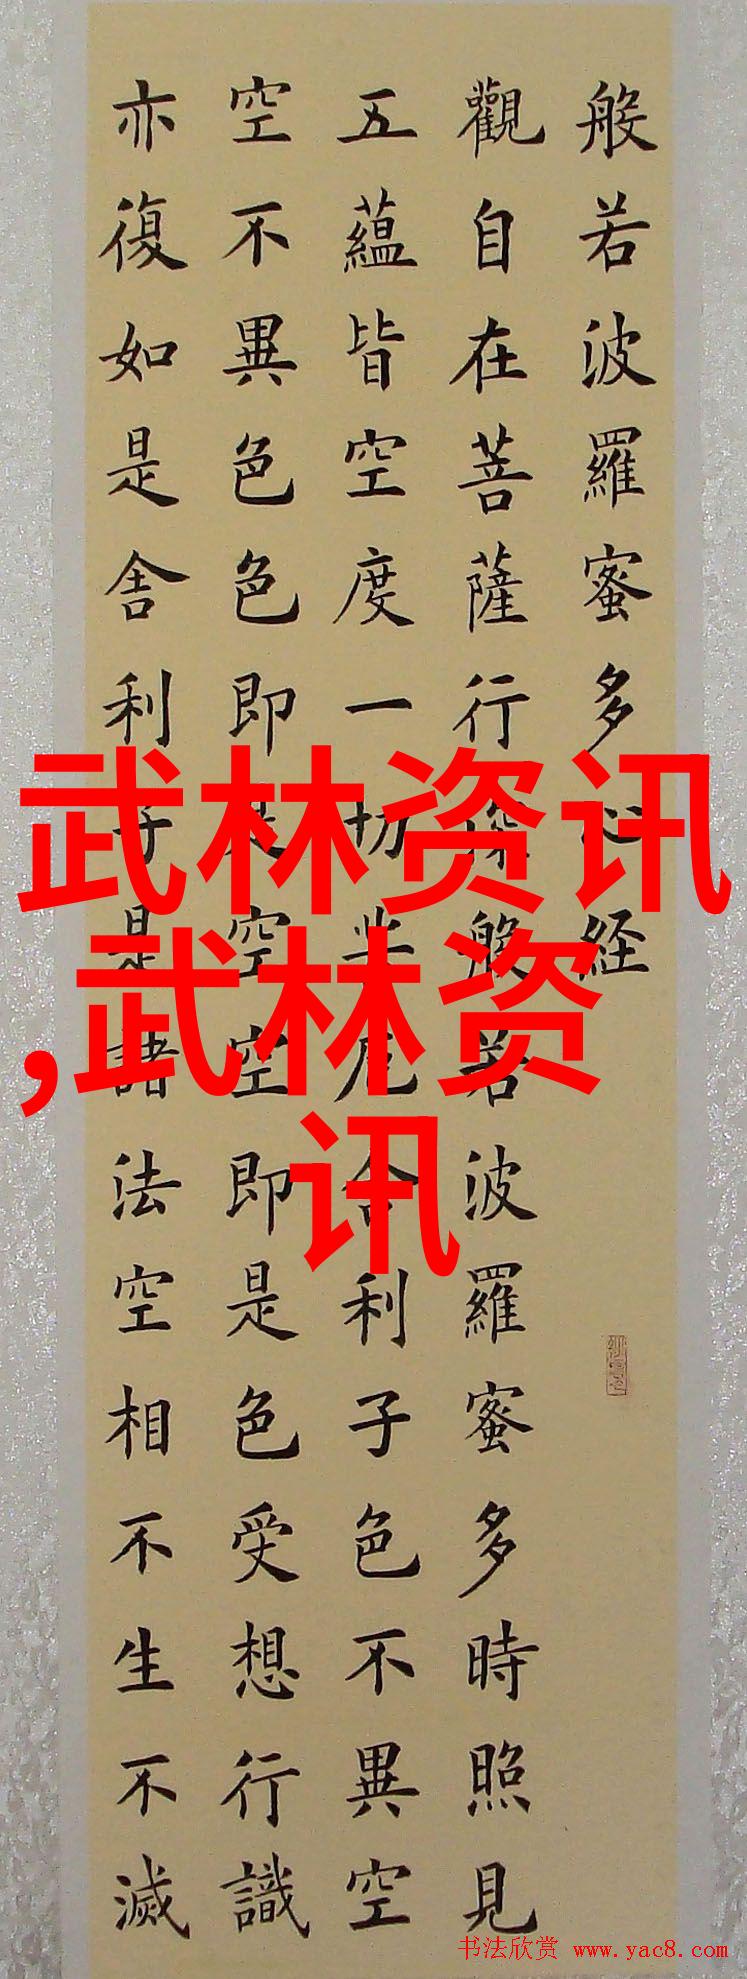 般若波羅蜜多心経
觀自在菩薩行深般若波羅蜜多時照見
五蘊皆空度一切苦厄舍利子色不異空
空不異色色即是空空即是色受想行識
亦復如是舍利子是諸法空相不生不滅
武林资讯
,武林资
讯
书法欣赏 www.yac8.com